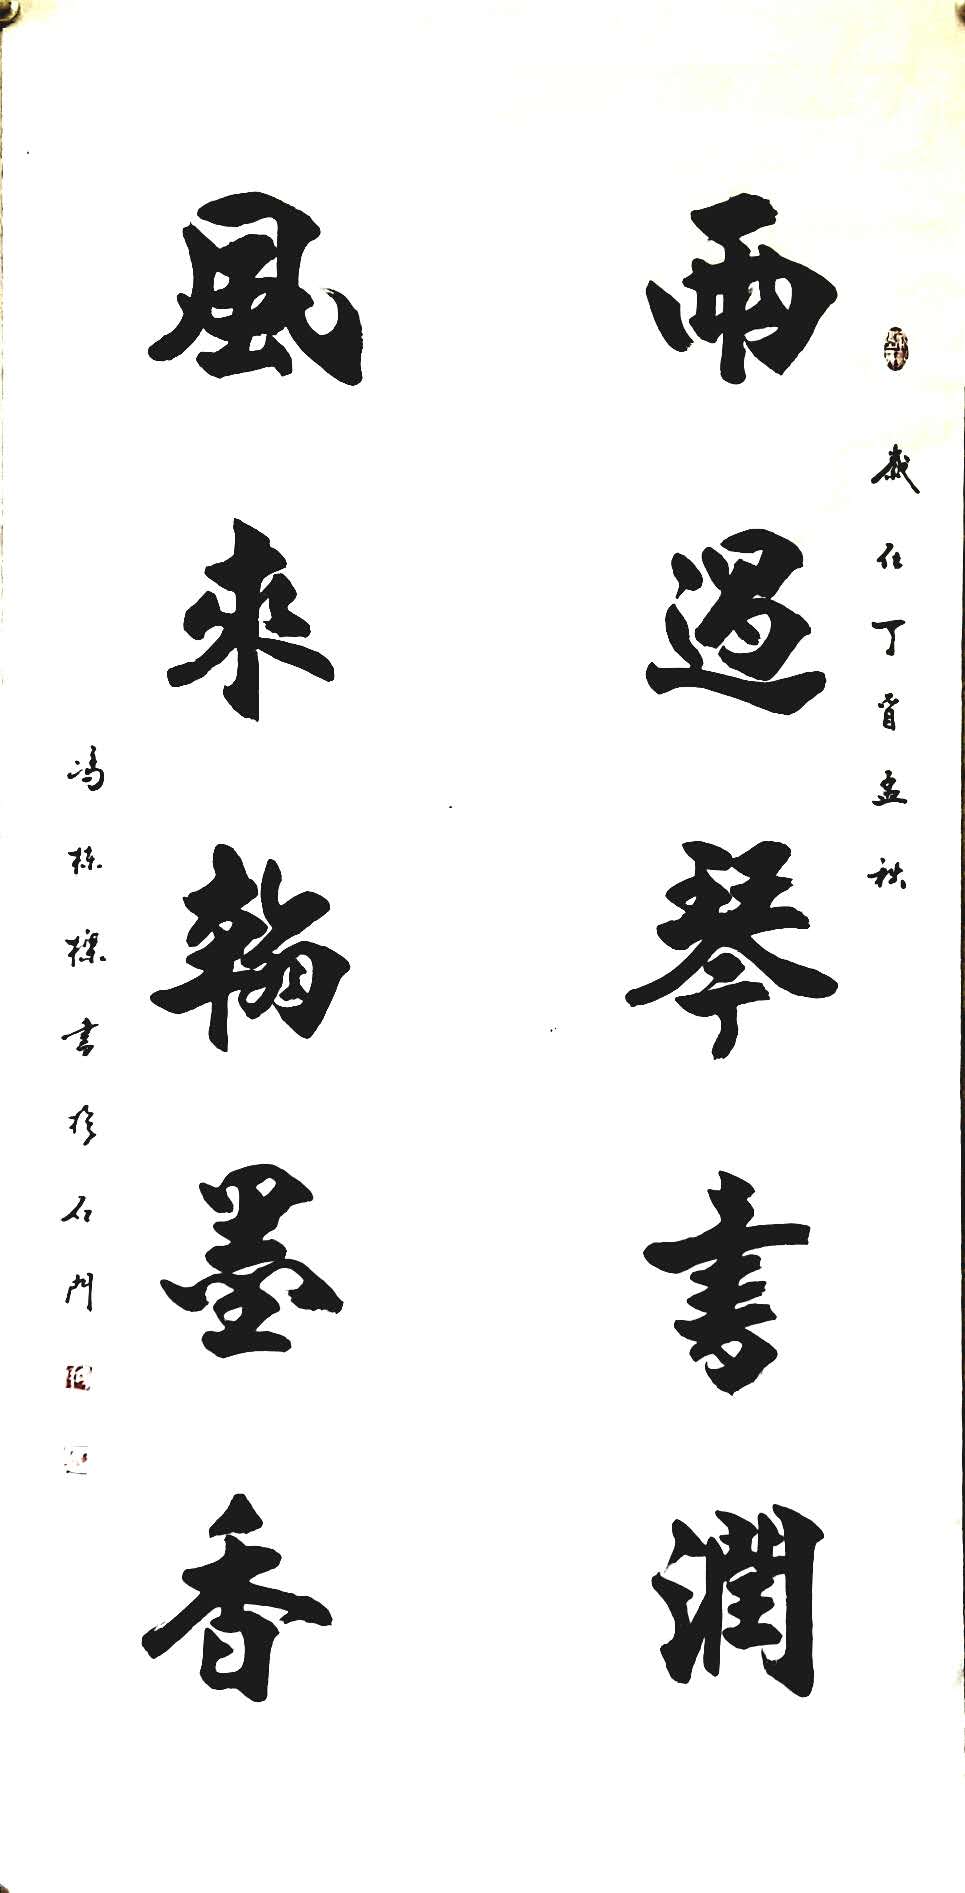 歲在丁酉孟秋
雨過琴書潤
風來翰墨香
冯栋樑書於石門